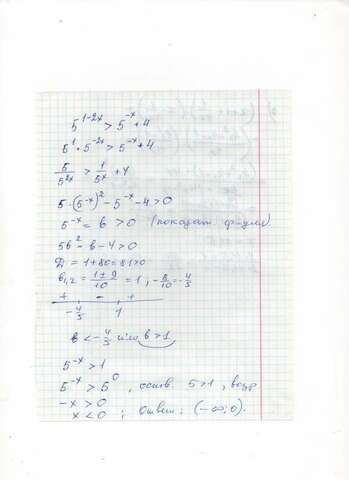 5^{1-2x} > 5^{-x} + 4
5^1 · 5^{-2x} > 5^{-x} + 4
5/5^{2x} > 1/5^x + 4
5 · (5^{-x})^2 - 5^{-x} - 4 > 0
5^{-x} = в > 0 (показат. функц)
5в^2 - в - 4 > 0
D = 1 + 80 = 81 > 0
в_{1,2} = (1 ± 9)/10 = 1; -8/10 = -4/5
+ - +
-4/5 1
в < -4/5 или в > 1
5^{-x} > 1
5^{-x} > 5^0, основ. 5 > 1, возр
-x > 0
x < 0 ; Ответ: (-∞; 0).